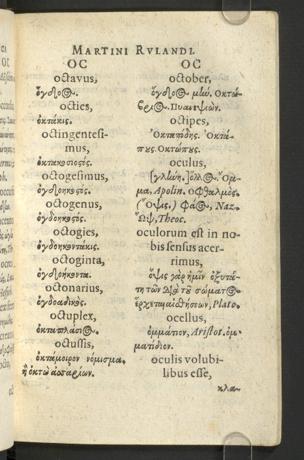 MARTINI RVLANDI.
OC
octavus,
ὄγδοος.
octies,
ὀκτάκις.
octingentesi-
mus,
ὀκτακοσιοςός.
octogesimus,
ὀγδοηκοςός.
octogenus,
ὀγδοηκοςός.
octogies,
ὀγδοηκοντάκις.
octoginta,
ὀγδοήκοντα.
octonarius,
ὀγδοαδικός.
octuplex,
ὀκταπλάσιος.
octussis,
ὀκτάμοιρον νόμισμα,
ἢ ὀκτὼ ἀσσαρίων.
OC
october,
ὄγδοος μήν. Ὀκτώ-
βριος. Πυανεψιών.
octipes,
Ὀκταπόδης. Ὀκτά-
πους. Ὀκτώπους.
oculus,
Ὄμ-
μα, Apolin. Ὀφθαλμός.
(Ὄψις.) Φάος, Naz.
Ὤψ, Theoc.
oculorum est in no-
bis sensus acer-
rimus,
ὄψις γὰρ ἡμῖν ὀξυτά-
τη τῶν διὰ τοῦ σώματος
ἔρχεται αἰσθήσεων, Plato.
ocellus,
ὀμμάτιον, Aristot. ὀμ-
ματίδιον.
oculis volubi-
libus esse,
κλα-